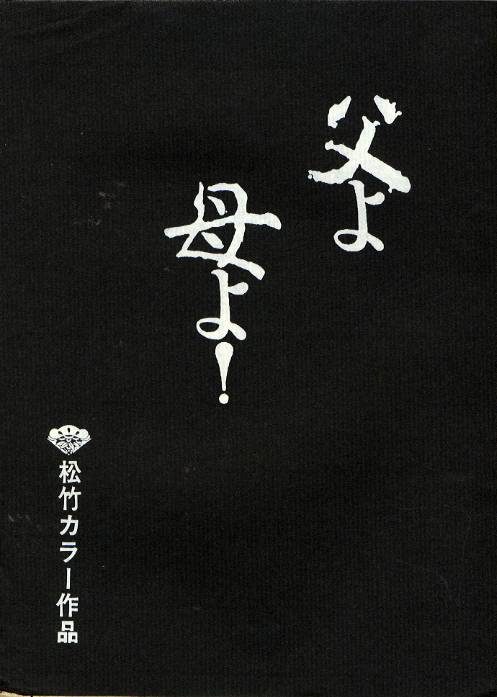 父よ
母よ！
松竹カラー作品